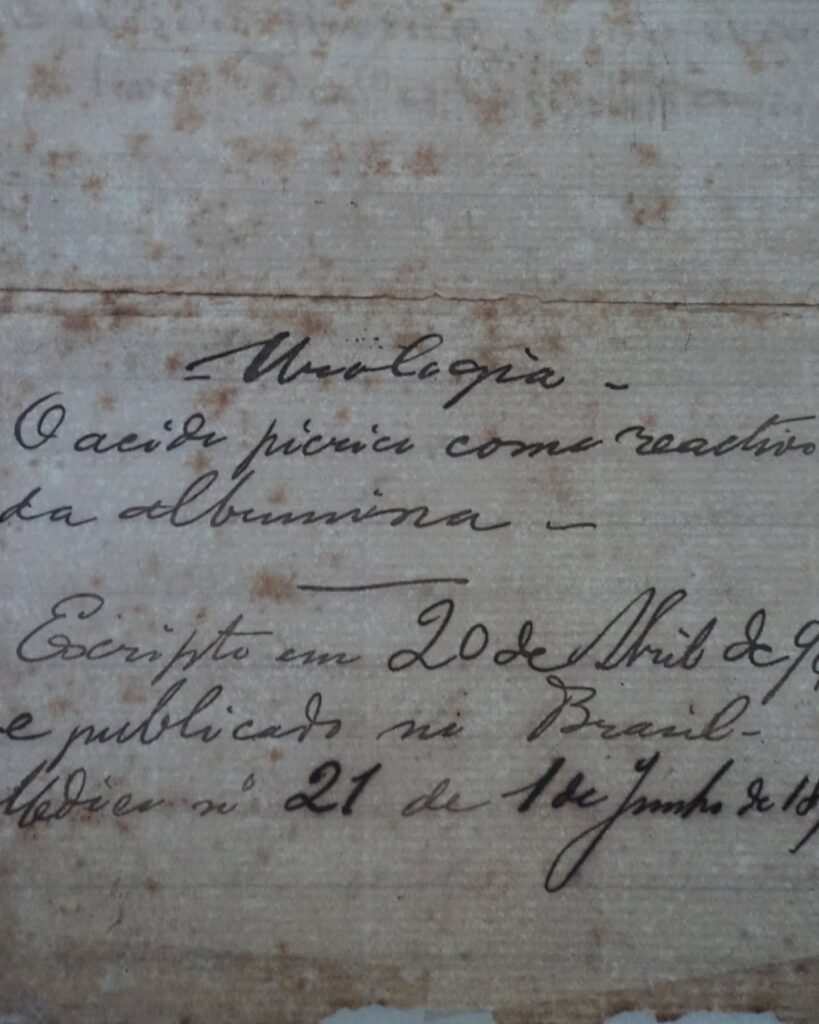 - Urologia -
O acido picrico como reactivo
da albumina -
Escripto em 20 de Abril de 9
e publicado no Brasil-
Medico nº 21 de 1 de Junho de 18